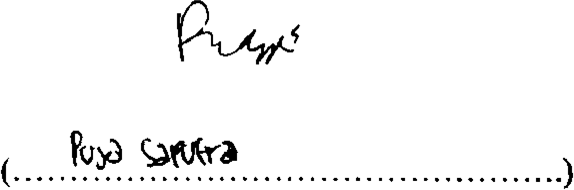 Puja Saputra
(........................................................................)